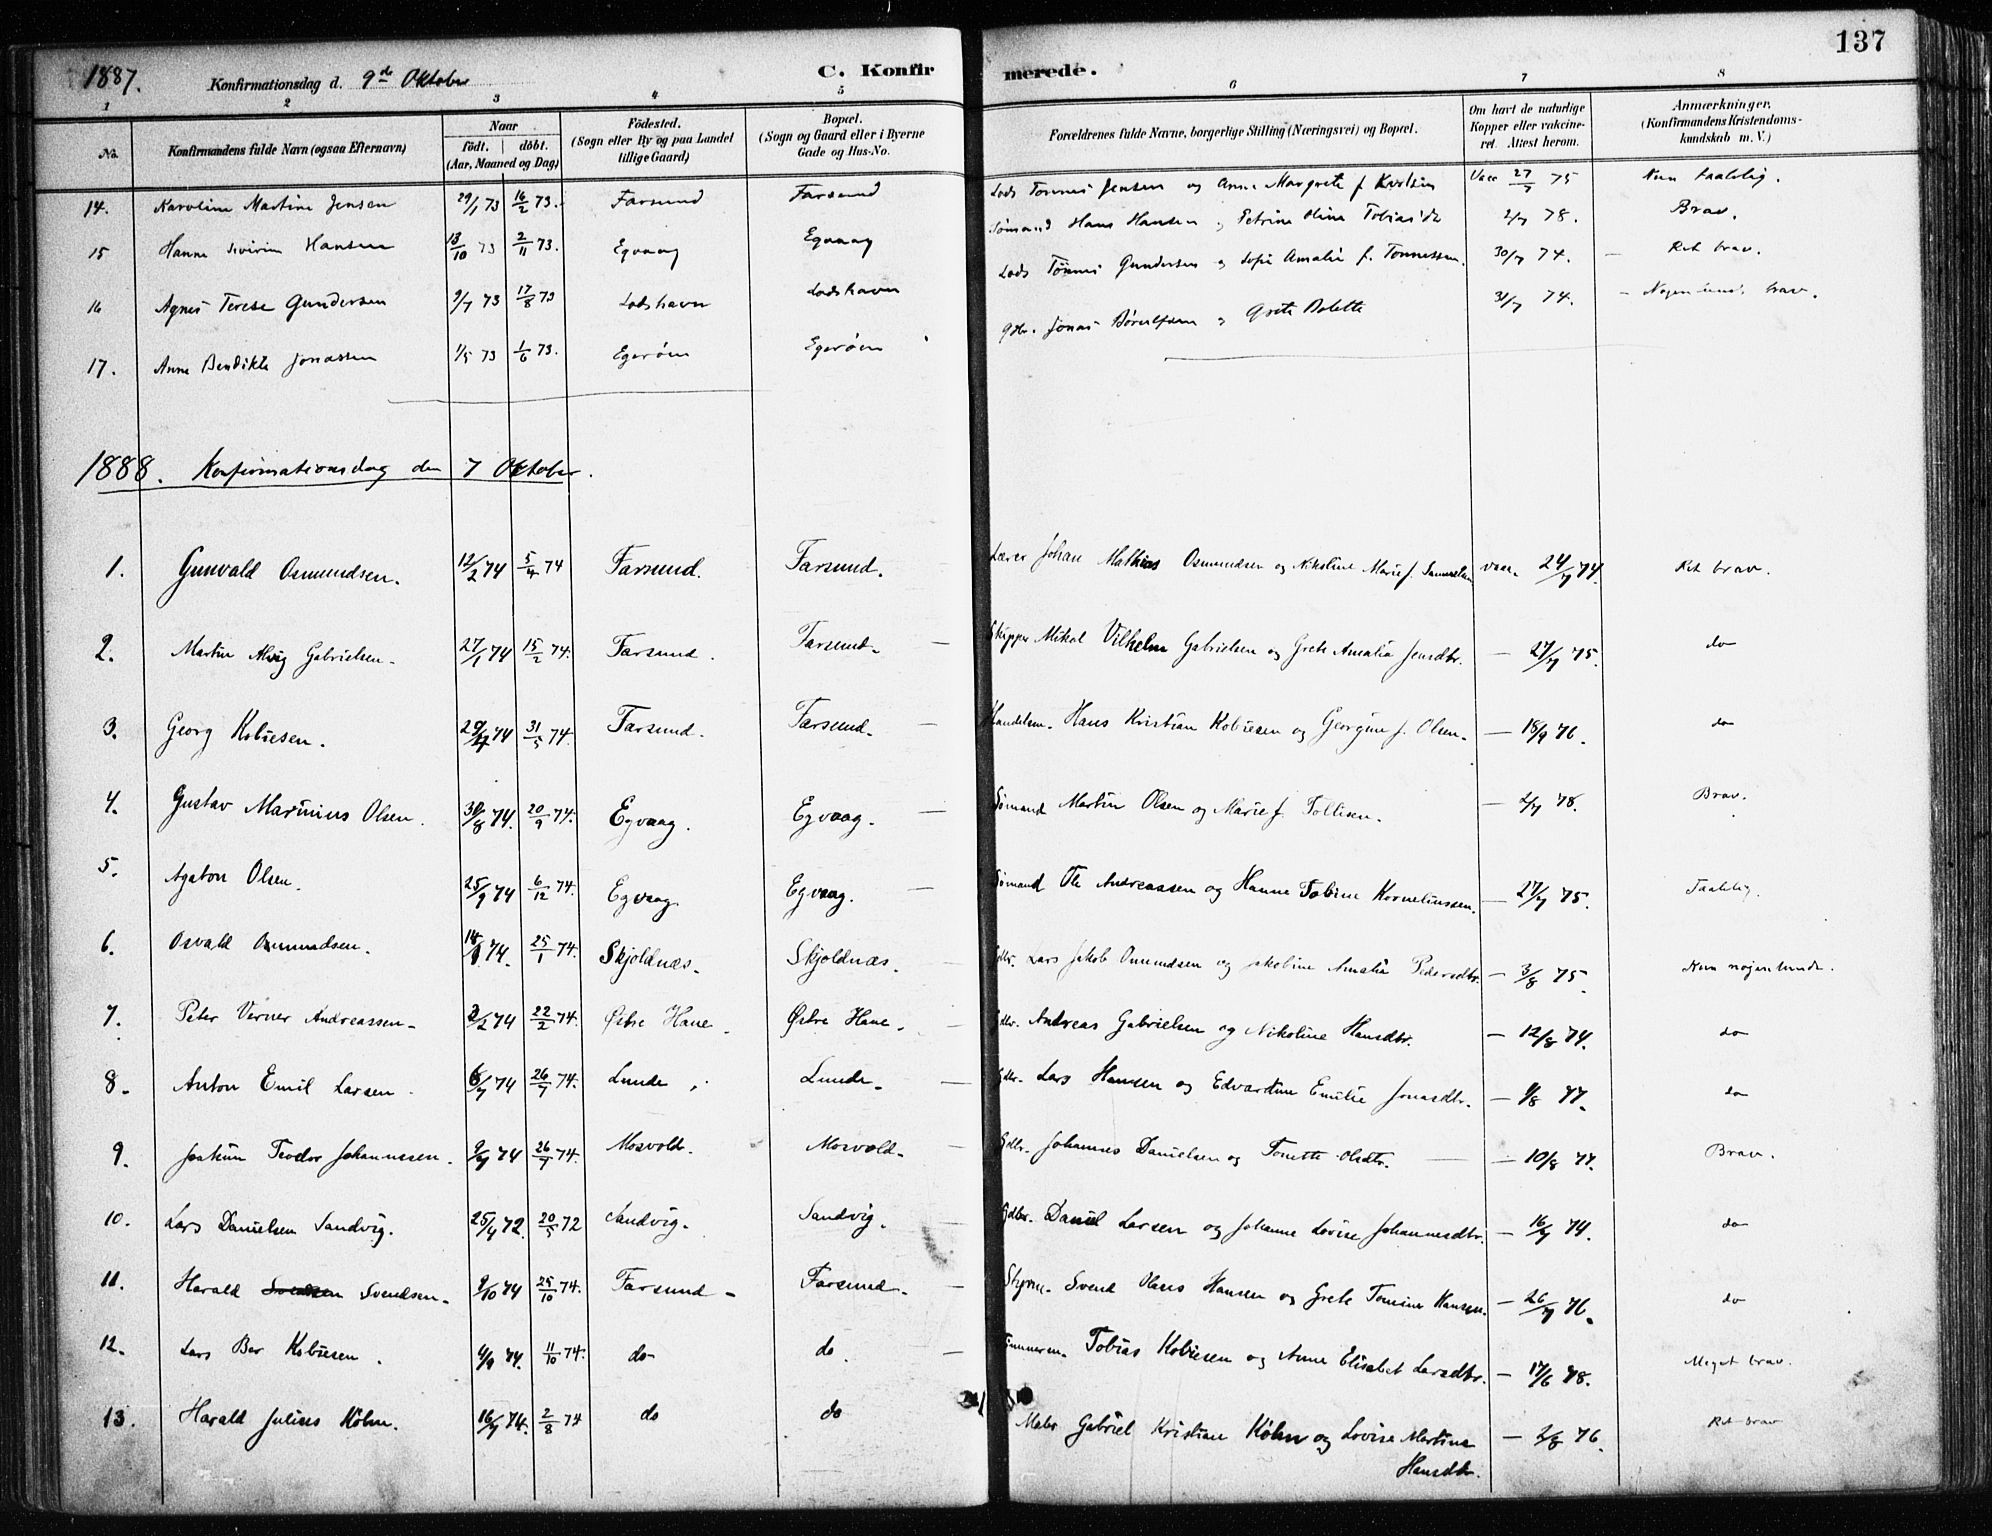 137
1887. Konfirmationsdag d. 9de Oktober C. Konfirmerede.
1 2 3 4 5 6 7 8
No. Konfirmandens fulde Navn (ogsaa Efternavn) Naar födt. döbt. (Aar, Maaned og Dag) Födested. (Sogn eller By og paa Landet tillige Gaard) Bopæl. (Sogn og Gaard eller i Byerne Gade og Hus-No. Forældrenes fulde Navne, borgerlige Stilling (Næringsvei) og Bopæl. Om havt de naturlige Kopper eller vakcineret. Attest herom. Anmærkninger. (Konfirmandens Kristendomskundskab m. V.)
14. Karoline Martine Jensen 29/1 73 16/2 73. Farsund Farsund Lods Tønnes Jensen og Anne Margrete f. Vacc 27/7 75 Nun taalelig.
15 Hanne Severin Hansen 13/10 73 2/11 73. Egvaag Egvaag Sømand Hans Hansen og Petrine Tobiasdt 2/7 78. Brav.
16 Agnes Terese Gundersen 9/7 73 17/8 73 Lodshavn Lodshavn Lods Tønnes Gundersen og Sofie Amalie f. Tønnessen. 30/7 74. — Ret brav.
17. Anne Bendikte Jonassen 1/5 73 1/6 73. Egerøen Egerøen Gdbr. Jonas og Grete Bolette 31/7 74. — brav.
1888. Konfirmationsdag den 7 Oktober.
1. Gunvald Osmundsen. 12/2 74 5/4 74 Farsund. Farsund. Lærer Johan Mathias Osmundsen og Nikoline Marie f. Samuelsen vacc. 24/7 74. Ret brav.
2. Martin Alvig Gabrielsen. 27/1 74 15/2 74. Farsund. Farsund. — Skipper Mikal Vilhelm Gabrielsen og Grete Amalia Jensdtr. — 27/7 75. do
3. Georg Kobiesen. 74 31/5 74. Farsund. Farsund. — Handelsm. Hans Kristian Kobiesen og Georgine f. Olsen. — 18/9 76. do
4. Gustav Marinius Olsen. 30/8 74. 20/9 74. Egvaag. Egvaag. — Sømand Martin Olsen og Marie f. Tollisen. — 2/7 78. Brav.
5. Agaton Olsen. 25/9 74 6/12 74. Egvaag. Egvaag. — Sømand Ole Andreassen og Hanne Tobine Korneliussen. — 27/7 75. Taalelig.
6. Osvald Osmundsen. 74. 25/1 74. Skjoldnæs. Skjoldnæs. — Gdbr. Lars Jakob Osmundsen og Jakobine Amalia Pedersdtr. — 3/8 75 Nun nøgenlunde.
7. Peter Verner Andreassen. 2/2 74 22/2 74. Østre Hane. Østre Hane. — Gdbr. Andreas Gabrielsen og Nikoline Hansdtr. — 12/8 74. do
8. Anton Emil Larsen. 6/7 74 26/7 74. Lunde. Lunde. — Gdbr. Lars Hansen og Edvardine Emilie Jonasdtr. — 1/8 77. do
9. Joakim Teodor Johannesen. 9/7 74 26/7 74. Mosvold. Mosvold. — Gdbr. Johannes Danielsen og Tonette Olsdtr. — 10/8 77. Brav.
10. Lars Danielsen Sandvig. 25/4 72. 20/5 72 Sandvig. Sandvig. — Gdbr. Daniel Larsen og Johanne Lovise Johannesdtr. — 16/7 74. do
11. Harald Svendsen. 9/10 74 25/10 74. Farsund — Farsund. — Styrm. Svend Olaus Hansen og Grete Tomine Hansen. — 26/7 76. do
12. Lars Ber Kobiesen. 4/9 74. 11/10 74. do do. — Tømmerm. Tobias Kobiesen og Anne Elisabet Larsdtr. — 17/6 78. Meget brav.
13. Harald Julius Köhn. 16/7 74. 2/8 74 do do Maler Gabriel Kristian Köhn og Lovise Martina Hansdtr. — 2/8 76. Ret brav